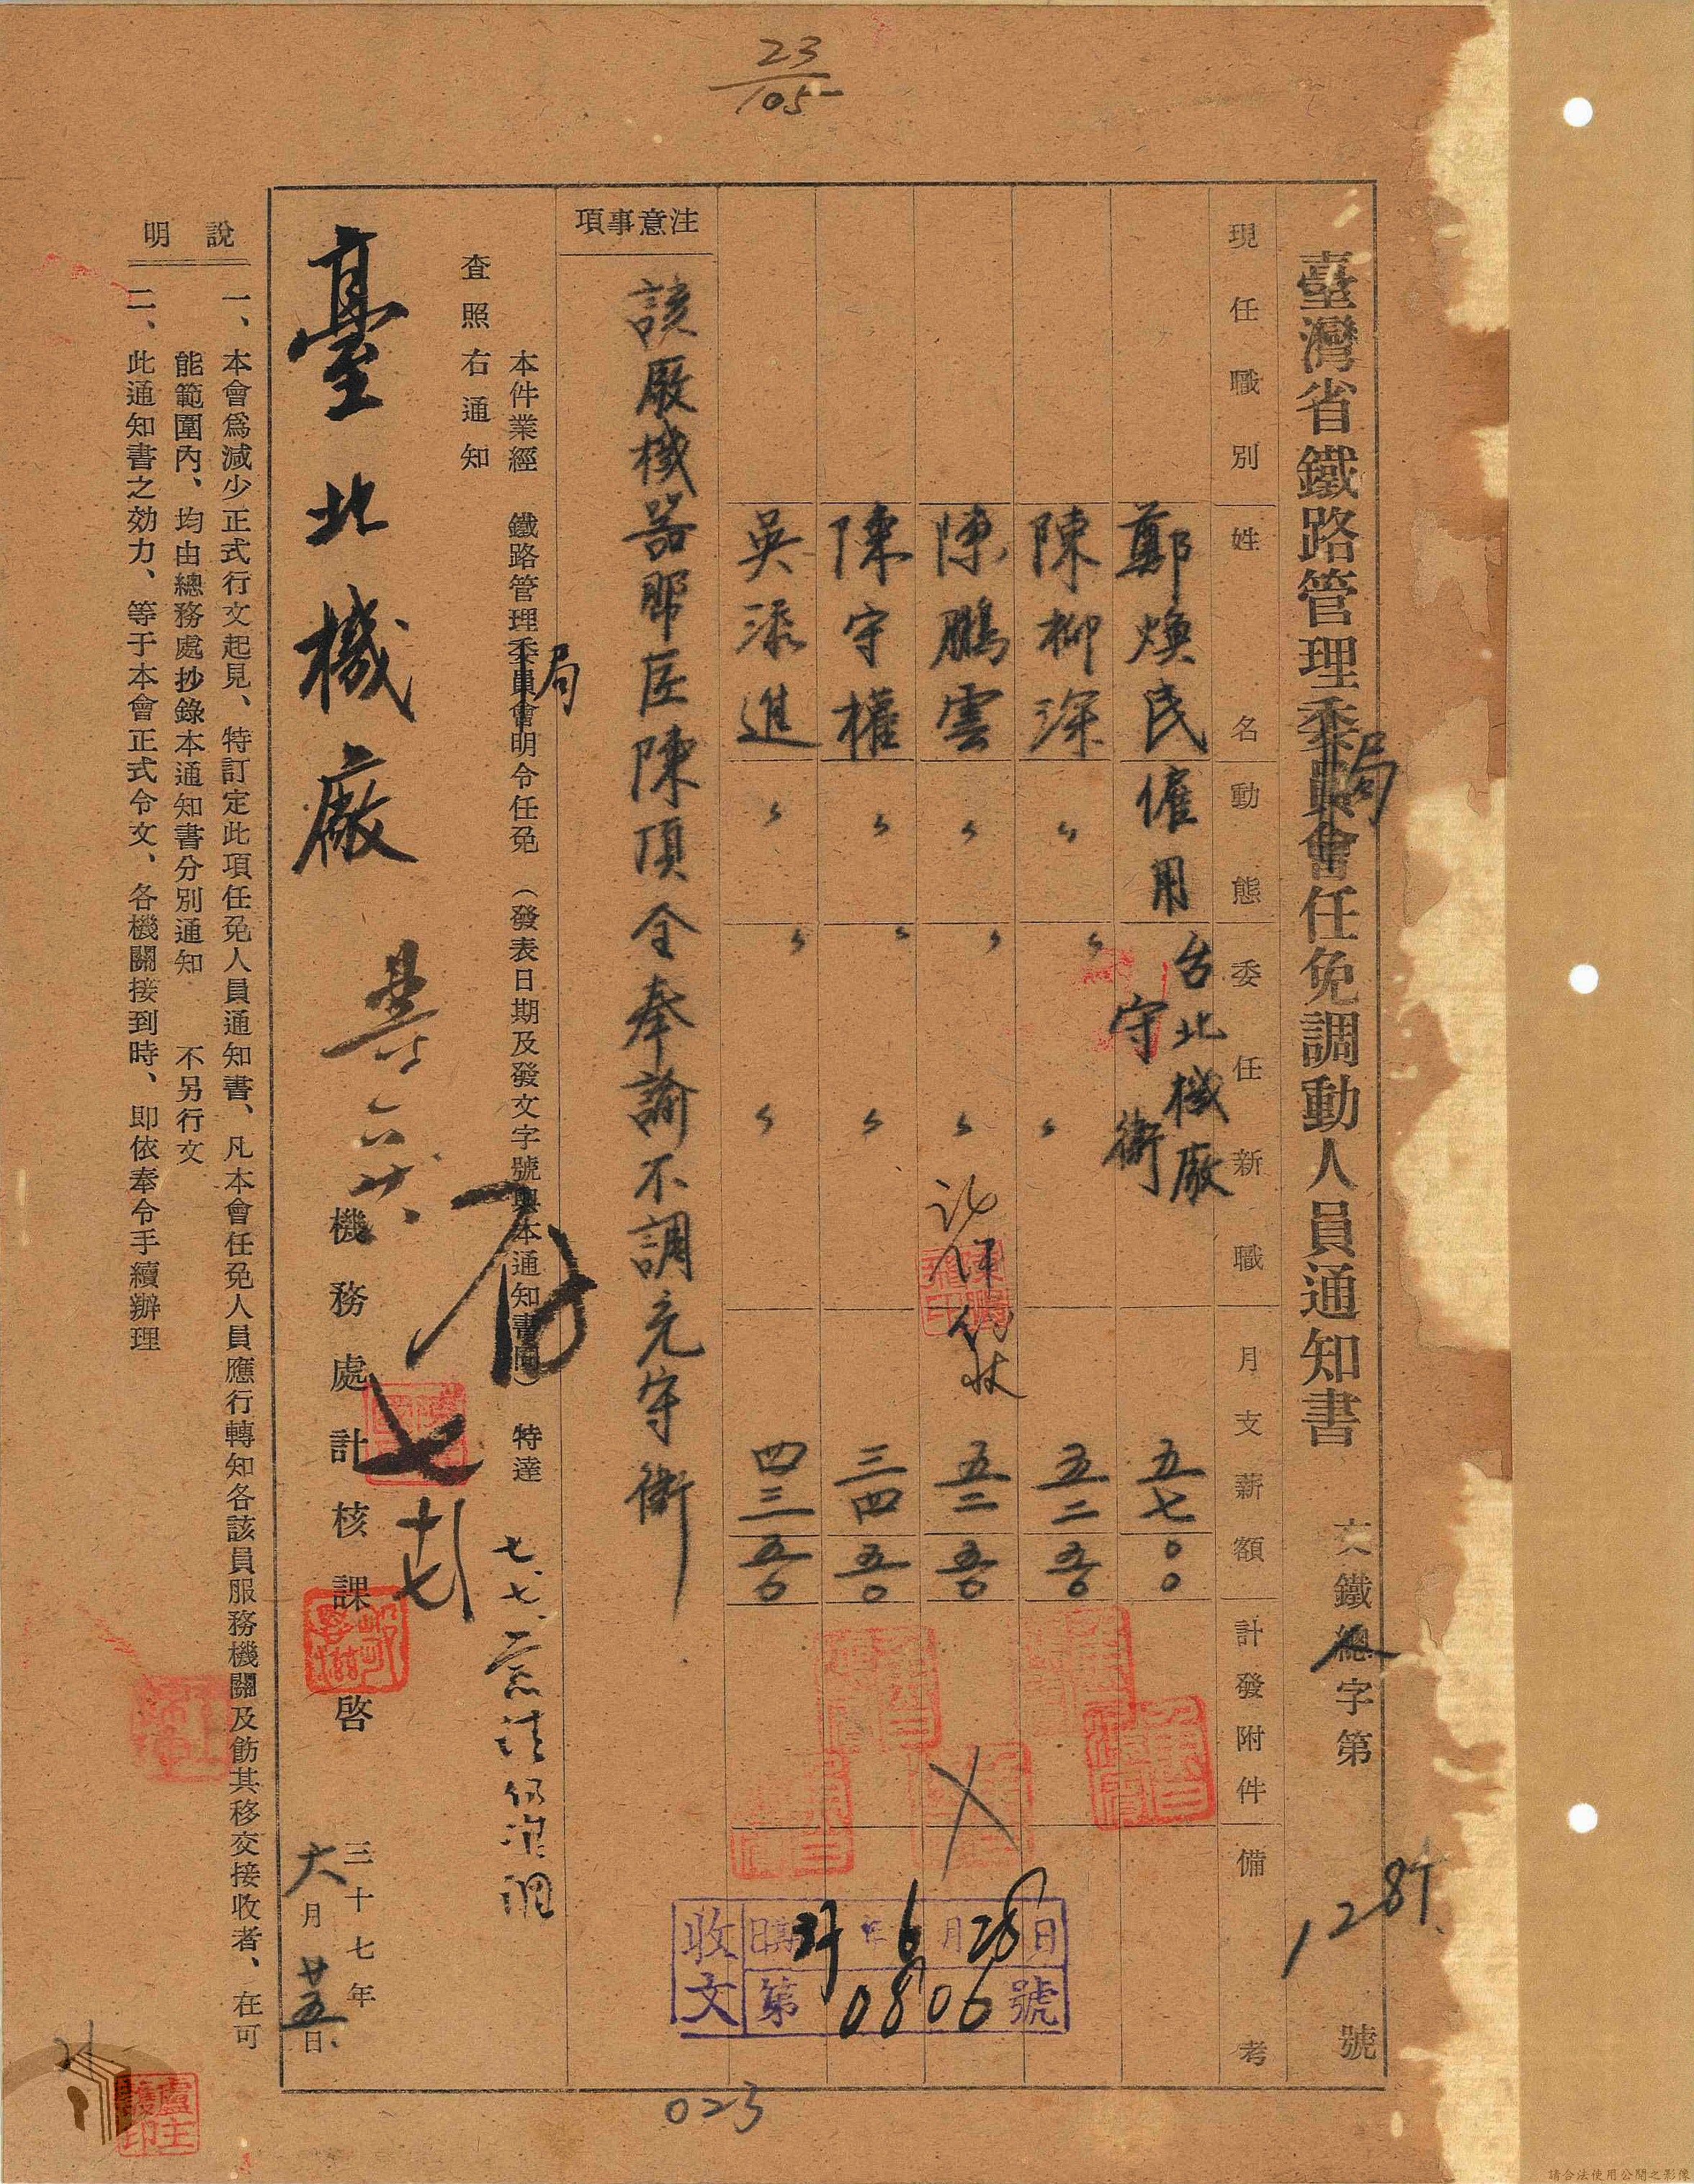 23
105
臺灣省鐵路管理委員會任免調動人員通知書
局
交鐵總字第 1284 號
人
現任職別 姓名 動態 委任新職 月支薪額 計發附件 備考
鄭煥民 僱用 台北機廠守衛 五七〇〇
陳柳深 〃 〃 〃 五二五〇
陳鵬雲 〃 〃 〃 五二五〇
陳守權 〃 〃 〃 三四五〇
吳添進 〃 〃 〃 四三五〇
注意事項
該廠機器幫匠陳頂全奉諭不調充守衛
本件業經 鐵路管理委員會明令任免(發表日期及發文字號與本通知書同)特達
局
查照右通知
臺北機廠
機務處計核課啓
三十七年
六月廿五日
七、七、
說明
一、本會爲減少正式行文起見、特訂定此項任免人員通知書、凡本會任免人員應行轉知各該員服務機關及飭其移交接收者、在可
能範圍內、均由總務處抄錄本通知書分別通知 不另行文
二、此通知書之効力、等于本會正式令文、各機關接到時、即依奉令手續辦理
收文 37年6月28日
第0806號
023
21
請合法使用公開之影像